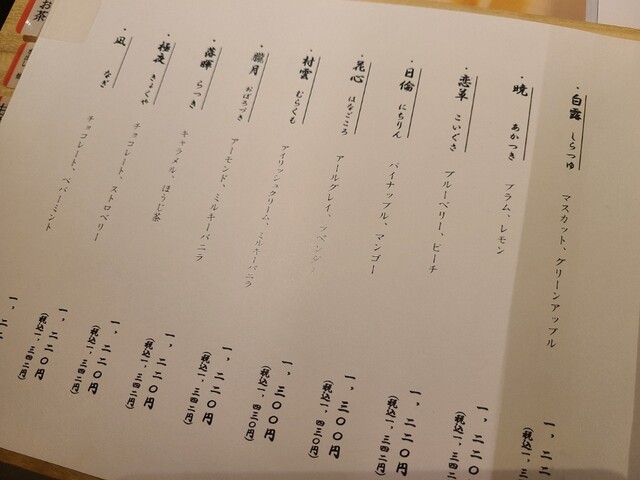 ・白露 しらつゆ マスカット、グリーンアップル
・暁 あかつき プラム、レモン 一、二二
(税込一、三
・恋草 こいぐさ ブルーベリー、ピーチ 一、二二〇
(税込一、三四二
・日倫 にちりん パイナップル、マンゴー 一、二二〇円
(税込一、三四二円)
・花心 はなごころ アールグレイ、ラベンダー 一、三〇〇円
(税込一、四三〇円)
・村雲 むらくも アイリッシュクリーム、ミルキーバニラ 一、三〇〇円
(税込一、四三〇円)
・朧月 おぼろづき アーモンド、ミルキーバニラ 一、二二〇円
(税込一、三四二円)
・落暉 らっき キャラメル、ほうじ茶 一、二二〇円
(税込一、三四二円)
・極夜 きょくや チョコレート、ストロベリー 一、二二〇円
(税込一、三四二円)
・凪 なぎ チョコレート、ペパーミント 一、二二〇円
(税込一、三四二円)
お茶